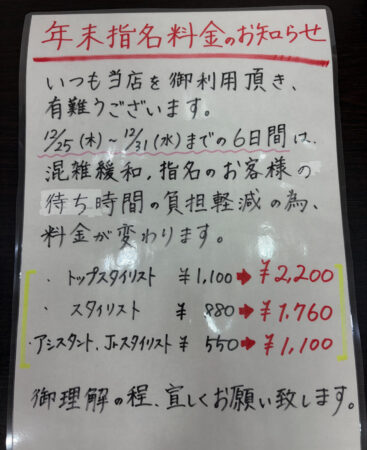 年末指名料金のお知らせ
いつも当店を御利用頂き、
有難うございます。
12/25(木)~12/31(水)までの6日間は、
混雑緩和、指名のお客様の
待ち時間の負担軽減の為、
料金が変わります。
・トップスタイリスト ¥1,100➡¥2,200
・スタイリスト ¥880➡¥1,760
・アシスタント、Jrスタイリスト ¥550➡¥1,100
御理解の程、宜しくお願い致します。